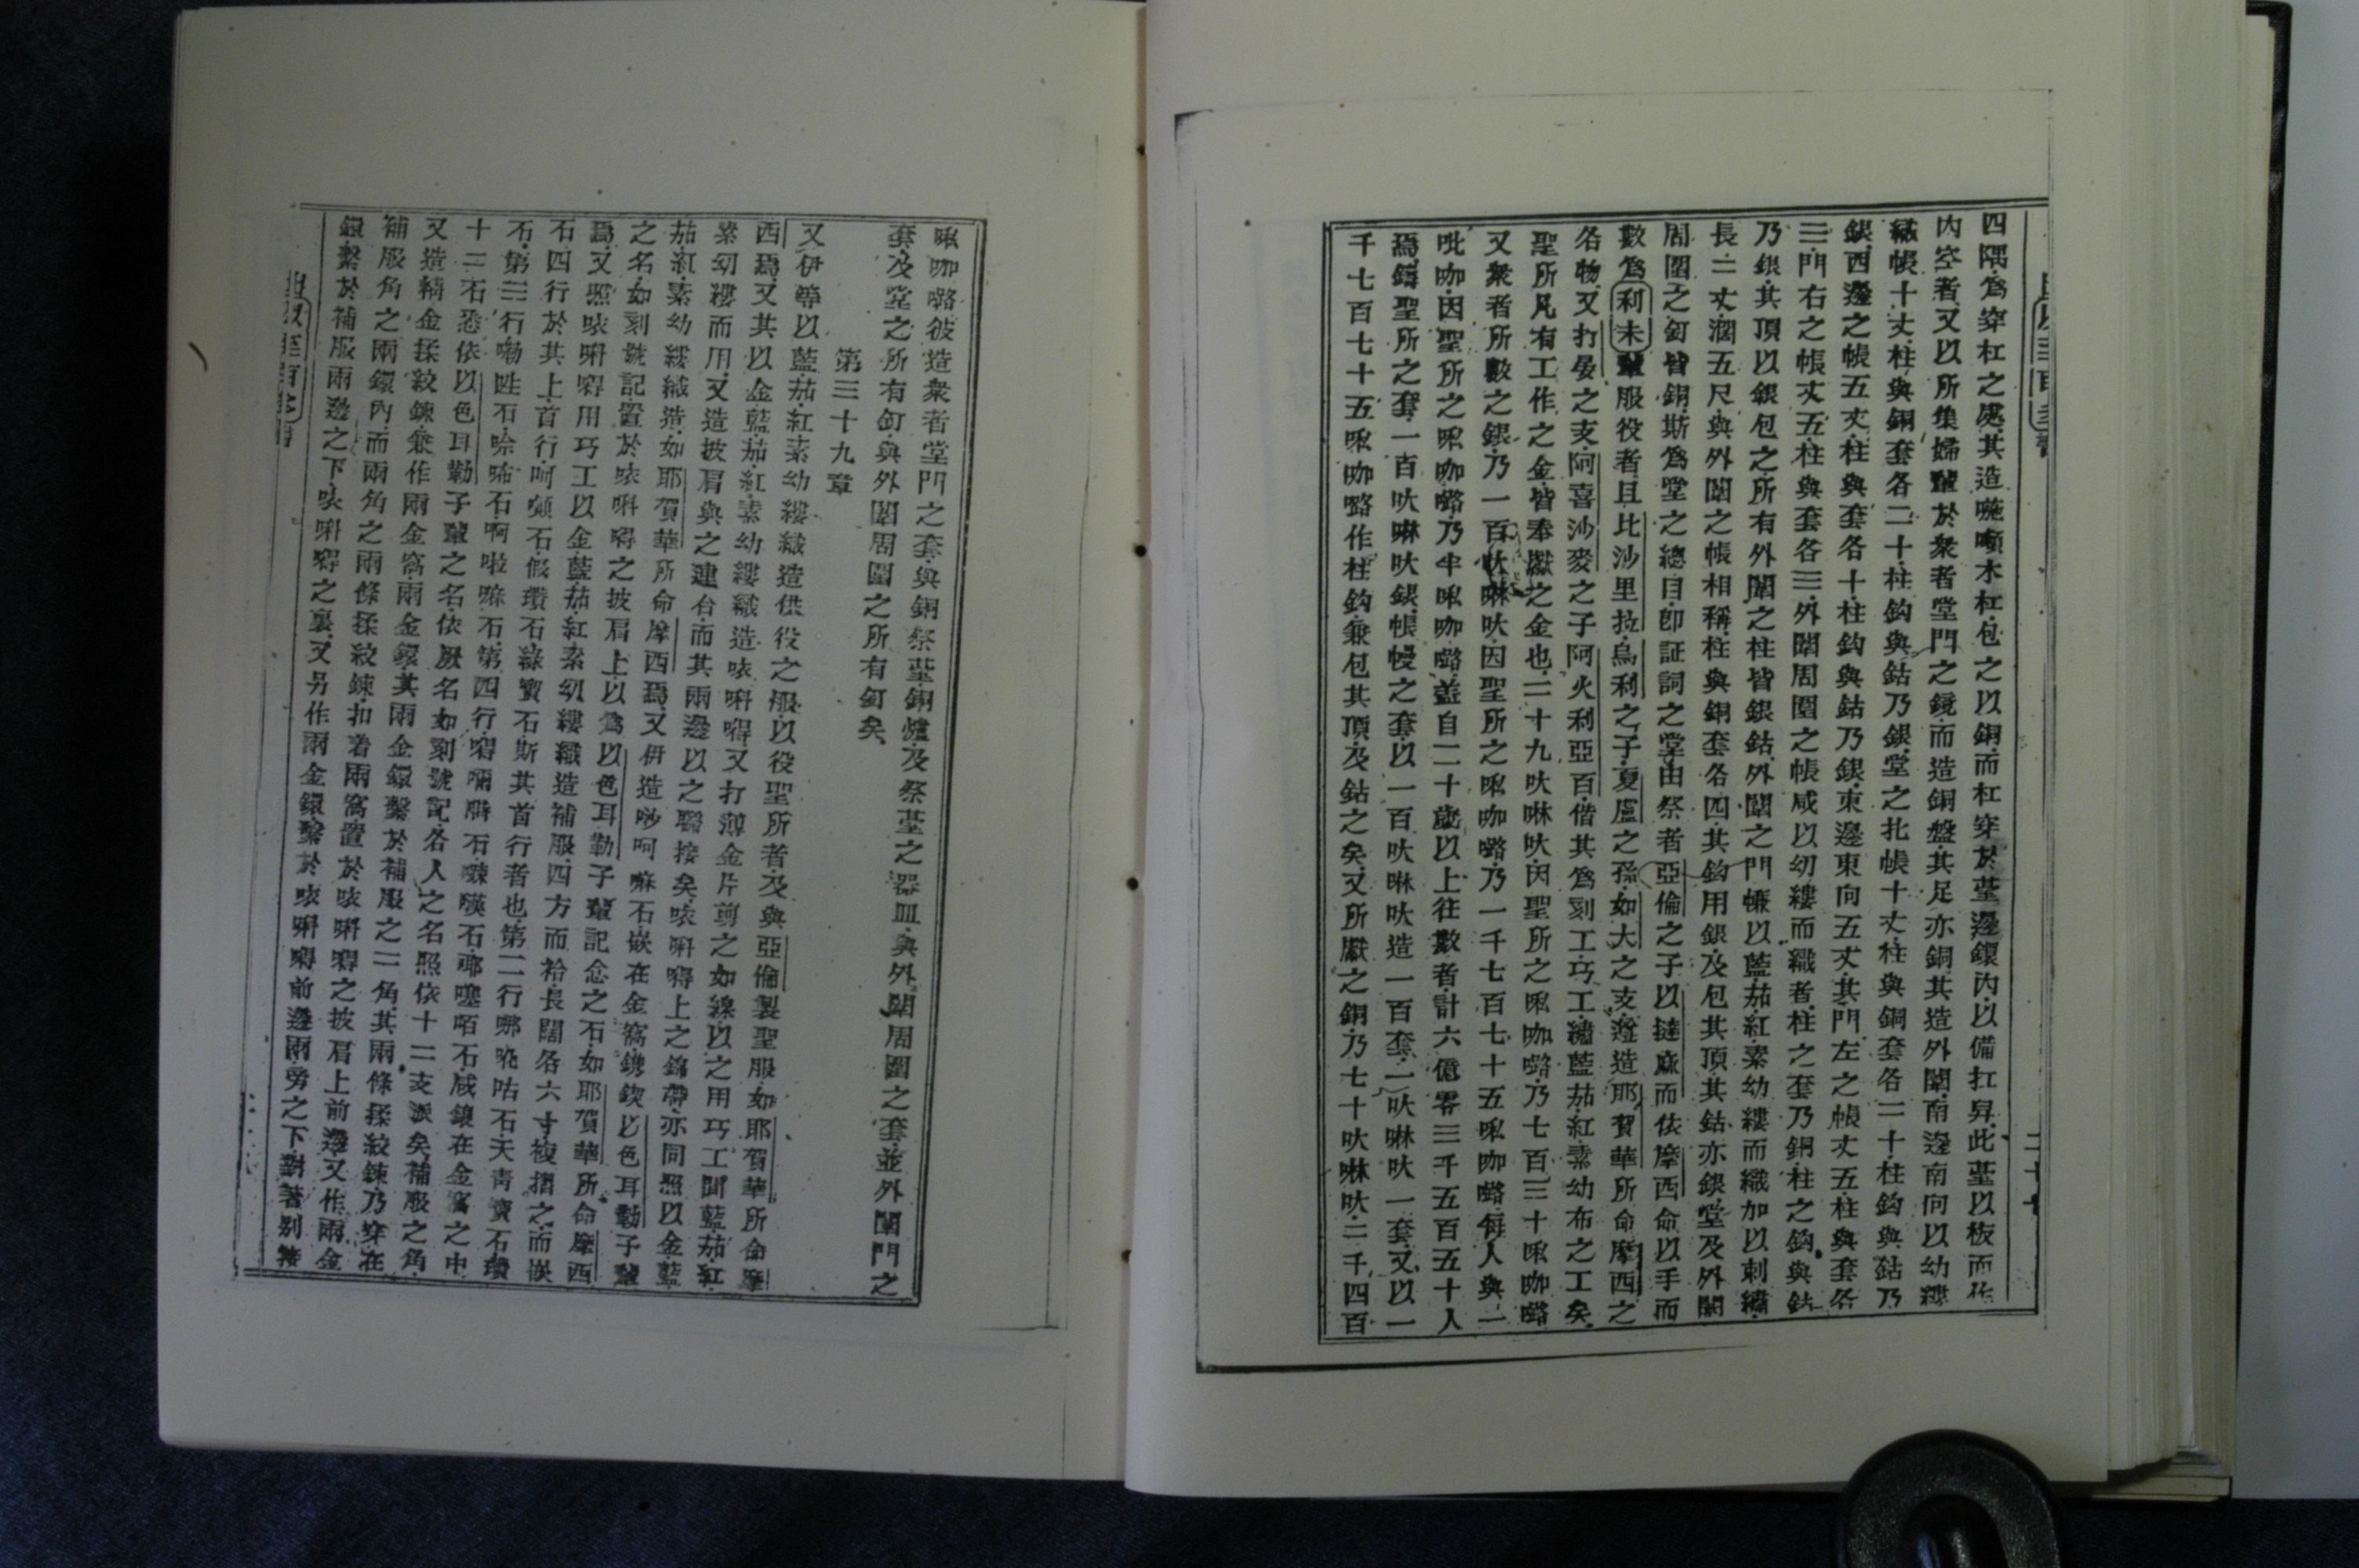 四隅爲穿杠之處其造𠺕㘔木杠包之以銅而杠穿於䑓邊鐶內以備扛舁此䑓以板而作
內空者又以所集婦輩於衆者堂門之鏡而造銅盤其足亦銅其造外闈南邊南向以幼縷
織帳十丈柱與銅套各二十柱鈎與鈷乃銀堂之北帳十丈柱與銅套各二十柱鈎與鈷乃
銀西邊之帳五丈柱與套各十柱鈎與鈷乃銀東邊東向五丈其門左之帳丈五柱與套各
三門右之帳丈五柱與套各三外闈周圍之帳咸以幼縷而織者柱之套乃銅柱之鈎與鈷
乃銀其頂以銀包之所有外闈之柱皆銀鈷外闈之門簾以藍茄紅素幼縷而織加以刺繡
長二丈濶五尺與外闈之帳相稱柱與銅套各四其鈎用銀及包其頂其鈷亦銀堂及外闈
周圍之釘皆銅斯爲堂之總目卽証詞之堂由祭者亞倫之子以撻麻而依摩西命以手而
數爲利未輩服役者且比沙里拉烏利之子夏盧之孫如大之支遵造耶賀華所命摩西之
各物又打晏之支阿喜沙麥之子阿火利亞百偕其爲刻工巧工繡藍茄紅素幼布之工矣
聖所凡有工作之金皆奉獻之金也二十九吠㖫吠因聖所之𠱥咖𡀔乃七百三十𠱥咖𡀔
又衆者所數之銀乃一百吠㖫吠因聖所之𠱥咖𡀔乃一千七百七十五𠱥咖𡀔每人與一
吡咖因聖所之𠱥咖𡀔乃半𠱥咖𡀔蓋自二十歲以上往數者計六億零三千五百五十人
焉鑄聖所之套一百吠㖫吠銀帳幔之套以一百吠㖫吠造一百套一吠㖫吠一套又以一
千七百七十五𠱥咖𡀔作柱鈎兼包其頂及鈷之矣又所獻之銅乃七十吠㖫吠二千四百
𠱥咖𡀔彼造衆者堂門之套與銅祭䑓銅爐及祭䑓之器皿與外闈周圍之套並外闈門之
套及堂之所有釘與外闈周圍之所有釘矣
第三十九章
又伊等以藍茄紅素幼縷織造供役之服以役聖所者及與亞倫製聖服如耶賀華所命摩
西焉又其以金藍茄紅素幼縷織造𠲖唎㘔又打薄金片剪之如線以之用巧工間藍茄紅
素幼縷而用又造披肩與之連合而其兩邊以之聯接矣𠲖唎㘔上之錦帶亦同照以金藍
茄紅素幼縷織造如耶賀華所命摩西焉又伊造㕰呵嘛石嵌在金窩鐫鍥以色耳勒子輩
之名如刻號記置於𠲖唎㘔之披肩上以爲以色耳勒子輩記念之石如耶賀華所命摩西
焉又照𠲖唎㘔用巧工以金藍茄紅素幼縷織造補服四方而袷長闊各六寸複摺之而嵌
石四行於其上首行呵㘔石假瓚石綠寶石斯其首行者也第二行哪㕭咕石天青寶石瓚
石第三行嘞甠石唅咘石啊啦嘛石第四行㗑嘪𠶸石㗜㗲石㖿㘔咟石咸鑲在金窩之中
十二石悉依以色耳勒子輩之名依厥名如刻號記各人之名照依十二支派矣補服之角
又造精金揉絞鍊兼作兩金窩兩金鐶其兩金鐶繫於補服之二角其兩條揉絞鍊乃穿在
補服角之兩鐶內而兩角之兩條揉絞鍊扣著兩窩置於𠲖唎㘔之披肩上前邊又作兩金
鐶繫於補服兩邊之下𠲖唎㘔之裏又另作兩金鐶繫於𠲖唎㘔前邊兩旁之下對著别接